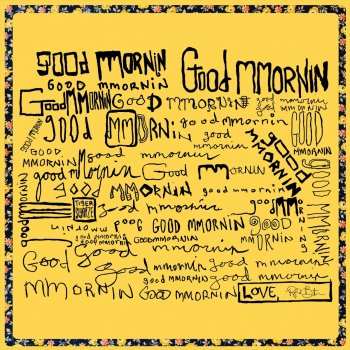 good mmornin Good mmornin
GOOD MMORNIN
Good MMORNIN GooD MMORNIN good mmornin
good MMORNIN good mmornin GOOD
good mmornin MMORNIN
GOOD MMORNIN good mmornin good
good mmornin Good MMORNIN
GOOD MMORNIN good mmornin GOOD MMORNIN
TIGER SUNRIZE Good mmornin good MMORNIN
MMORNIN good GOOD MMORNIN GOOD
good mmornin GOODMMORNIN MMORNIN
good mmornin
Good Good mmornin good mmornin
Good mmornin good mmornin
MMORNIN GOOD MMORNIN LOVE,